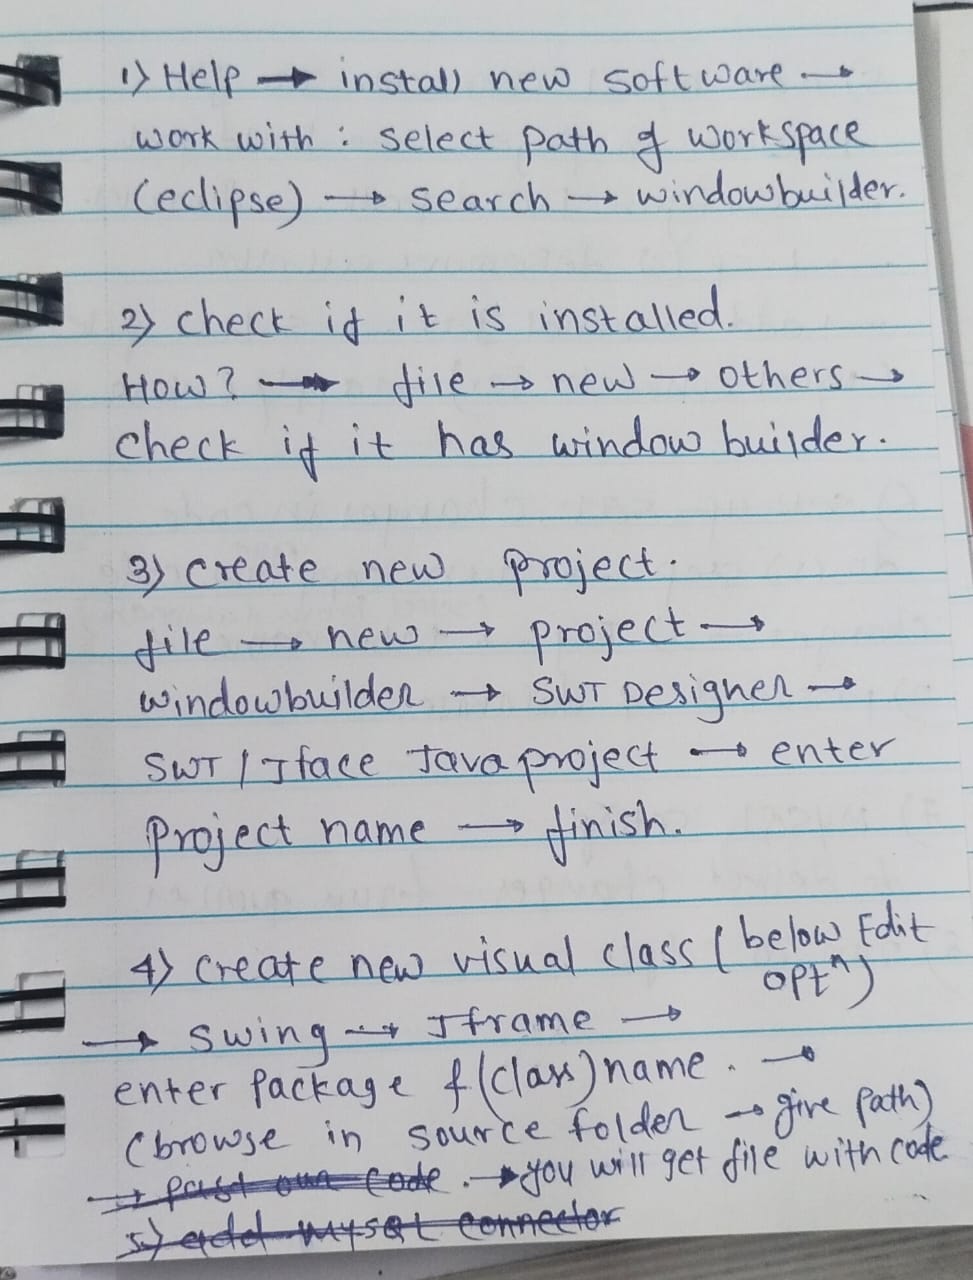 1) Help → install new software →
work with : select path of workspace
(eclipse) → search → windowbuilder.
2) check if it is installed.
How? → file → new → others →
check if it has window builder.
3) create new project.
file → new → project →
windowbuilder → SWT Designer →
SWT / Jface Java project → enter
Project name → finish.
4) create new visual class ( below Edit
optn)
→ swing → Jframe →
enter package f (class) name. →
(browse in source folder → give path)
→ past our code. → you will get file with code
5) add mysql connector